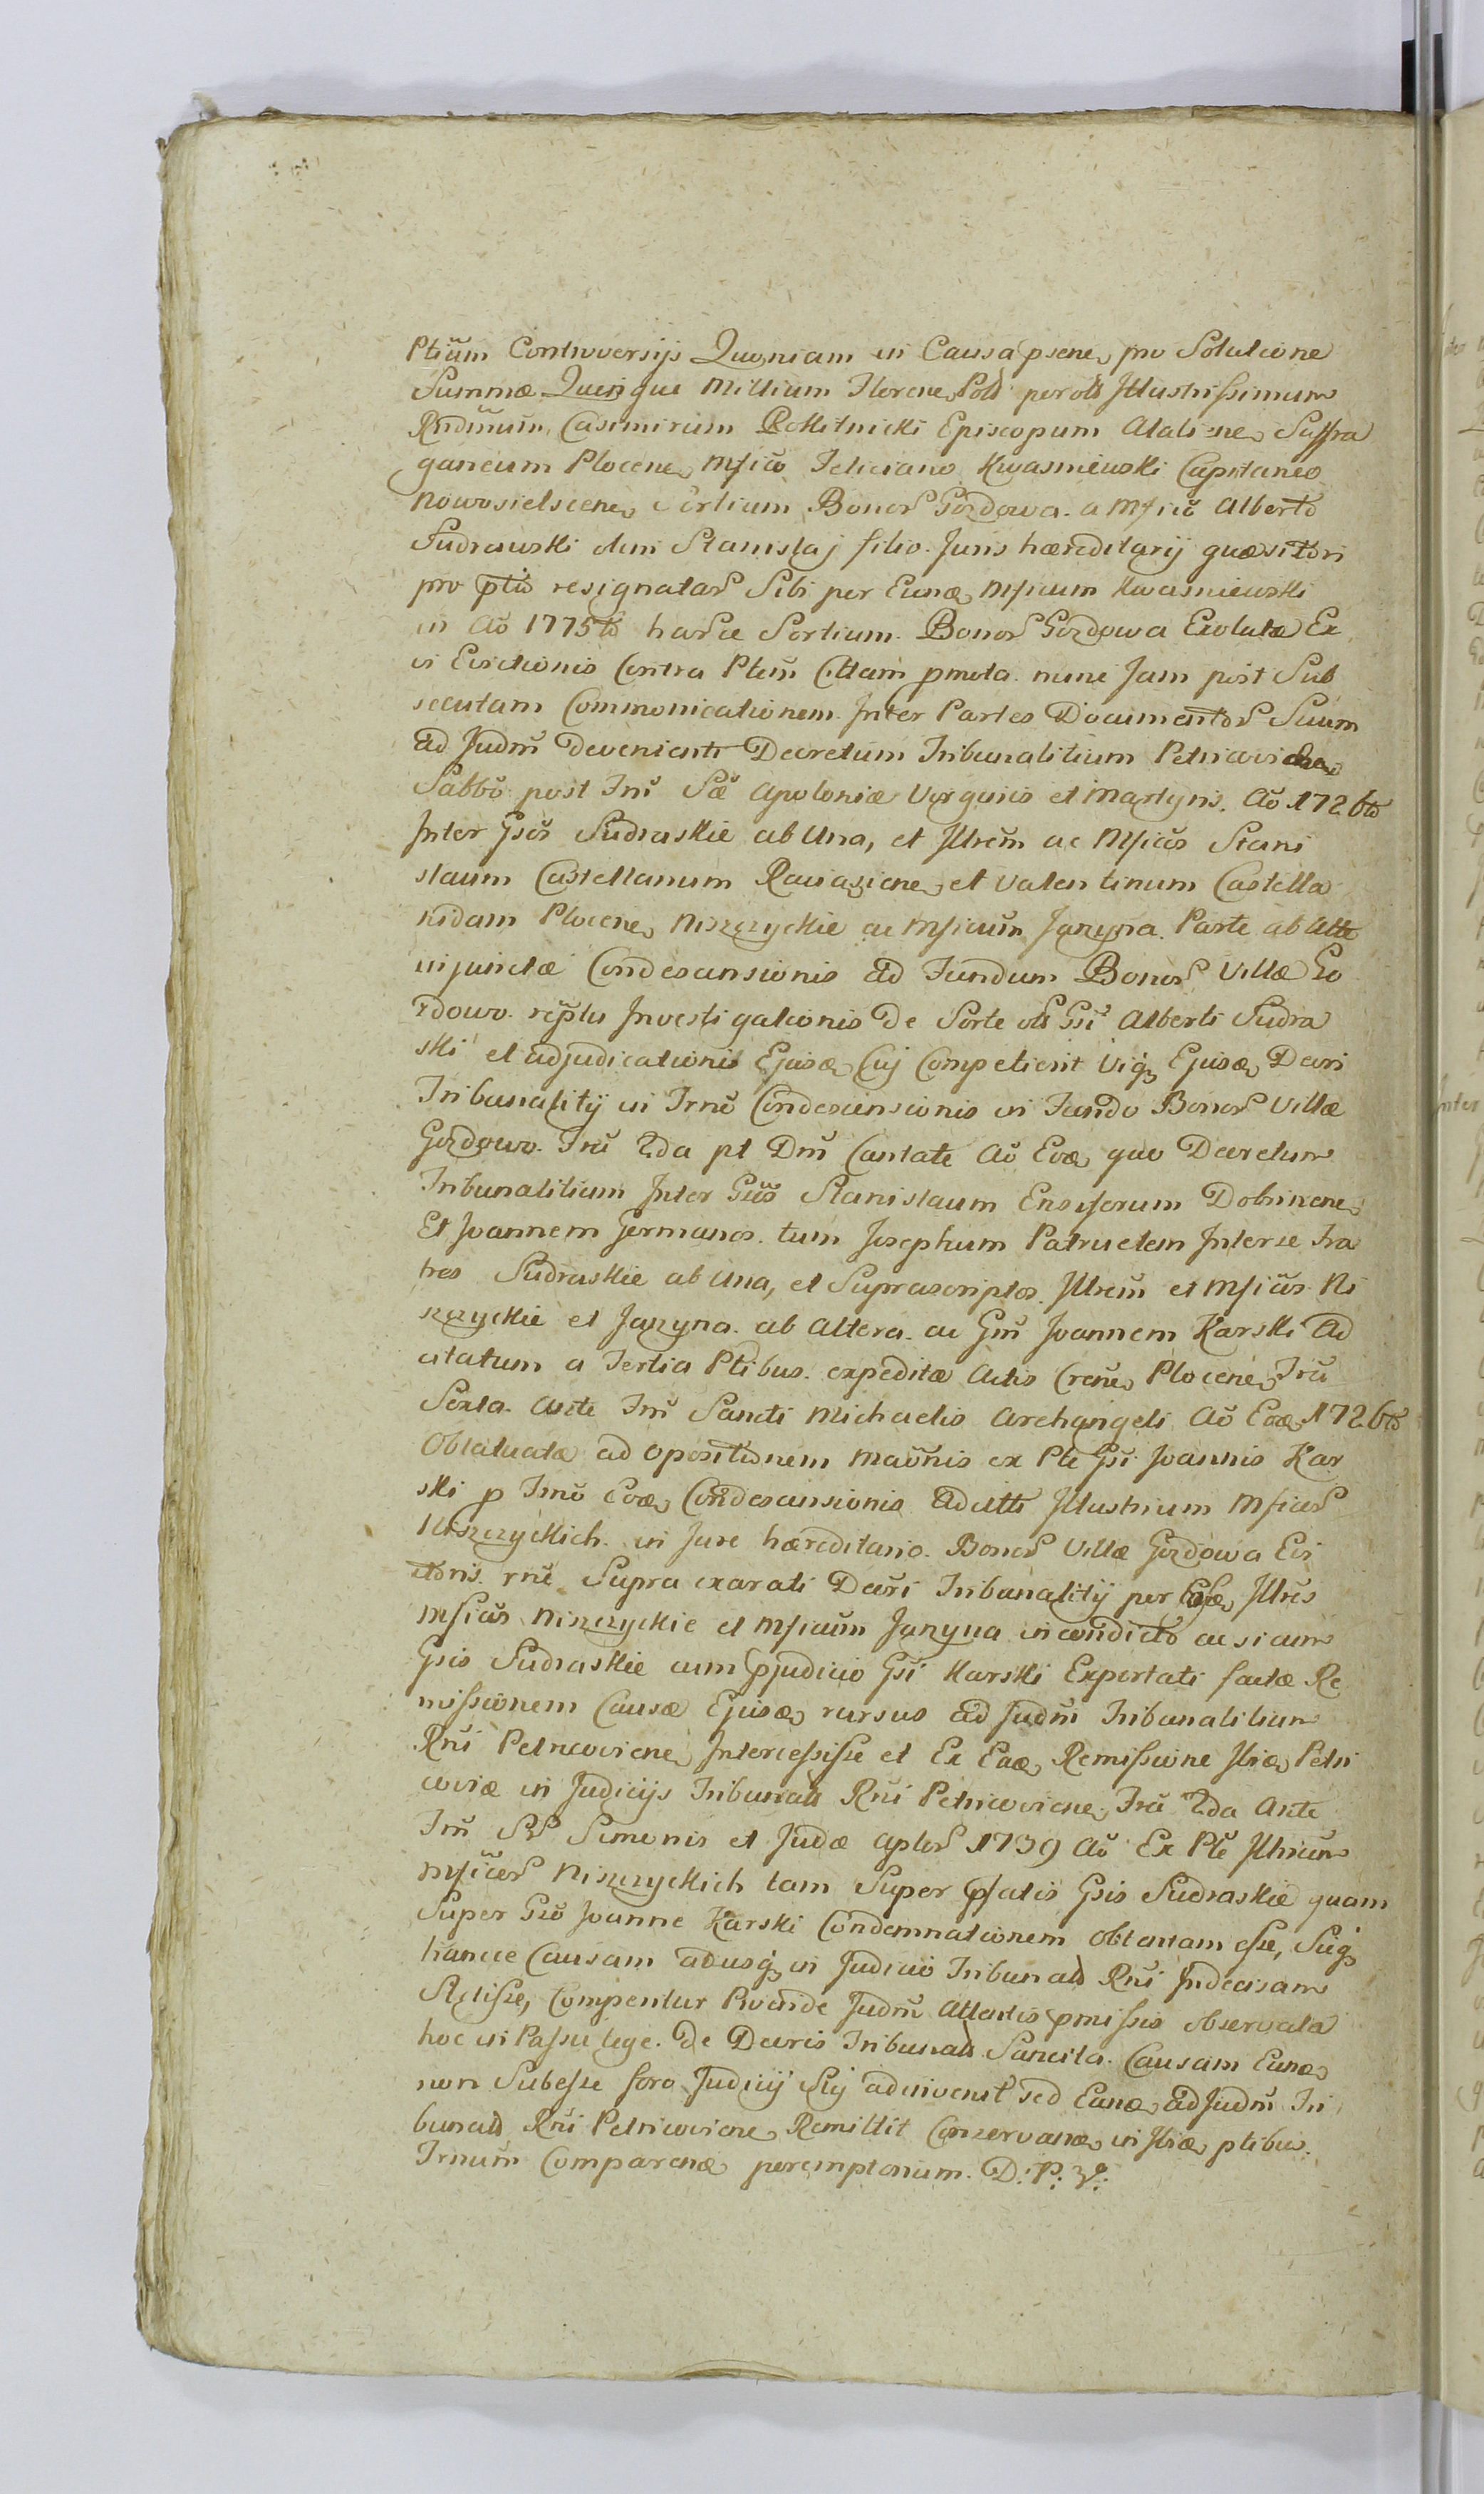 Ptium Controversijs Quoniam in Causa psene, pro Solutione
Summæ Quinque Millium Florene, Poll per olt Illustrissimum
Rndmum Casimirum Rokitnicki Episcopum Atali ene, Suffra
ganeum Plocene, Mfico Feliciano Kwasniewski Capitaneo
Nowosielscene, Sortium Bonor Gozdowa. a Mfico Alberto
Sudrawski olim Stanislaj filio. Juris hæreditarij quæsitori
pro ptio resignatar Sibi per Eunæ, Mficum Kwasniewski
in Ao 1775to harce Sortium. Bonor Gozdowa Exolutæ Ex
vi Evictionis Contra Ptem Cittam pmota. nunc Jam post Sub
secutam Communicationem. Inter Partes Documentor Suum
ad Judm devenienti Decretum Tribunalitium Petricoviene
Sabbo post Fm Sæ Apoloniæ Virginis et Martyris. Ao 1726to
Inter Gsos Sudraskie ab Una, et Illrem ac Mficos Stani
slaum Castellanum Raciaziene, et Valentinum Castella
nidam Plocene, Niszczyckie ac Mficum Janzyna. Parte ab Altr
injunctæ Condescensionis ad Fundum Bonor Villæ Go
zdowo. rptu Investigationis De Sorte olt Gsi Alberti Sudra
ski et adjudicationis Ejusæ, Cuj Competierit Vig, Ejusæ, Decri
Tribunalitij in Trno Condescensionis in Fundo Bonor Villæ
Gozdowo. Fra 2da pt Dm Cantate Ao Eoæ, quo Decretum
Tribunalitium Inter Gsos Stanislaum Ensiferum Dobrinene,
Et Joannem Germanos. tum Josephum Patruelem Inter se Fra
tres Sudraskie ab Una, et Suprascriptos. Illrem et Mficos Ni
szczyckie et Janzyna. ab Altera. ac Gm Joannem Karski Ad
citatum a Tertia Ptibus. expeditæ Actis Crene, Plocene, Fra
Sexta. Ante Fm Sancti Michaelis Archangeli Ao Eoæ, 1726to
Oblatuatæ ad Opositionem Maonis ex Pte Gsi Joannis Kar
ski p Trno Eoæ, Condescensionis Aducti Illustrium Mficor
Niszczyckich. in Jure hæreditario. Bonor Villæ Gozdowa Evi
ctoris. rne Supra exarati Decri Tribunalitij per Eosæ, Illres
Mficos Niszczyckie et Mficum Janzyna in condicto ac si cum
Gsis Sudraskie cum pjudicio Gsi Karski Exportati factæ Re
missionem Causæ Ejusæ, rursus ad Judm Tribunalitium
Rni Petricoviene, Intercessisse et Ex Eaæ, Remissione Ibiæ, Petri
coviæ in Judicijs Tribunalt Rni Petricoviene, Fra 2da Ante
Fm SS Simonis et Judæ Aplor 1739 Ao Ex Pte Illrium
Mficor Niszczyckich tam Super pfatis Gsis Sudraskie quam
Super Gso Joanne Karski Condemnationem Obtentam esse, Sicq
hancce Causam adusq, in Judicio Tribunalt Rni Indecisam
Stetisse, Comperitur Proinde Judm Attentis pmissis observata
hoc in Passu lege. De Decris Tribunalt Sancita. Causam Eanæ,
non Subesse foro Judicij Sui adinvenit sed Eanæ, ad Judm Tri
bunalt Rni Petricoviene, Remittit Conservanæ, in Ibiæ, ptibus.
Trnum Comparenæ peremptorium. D: P: V: